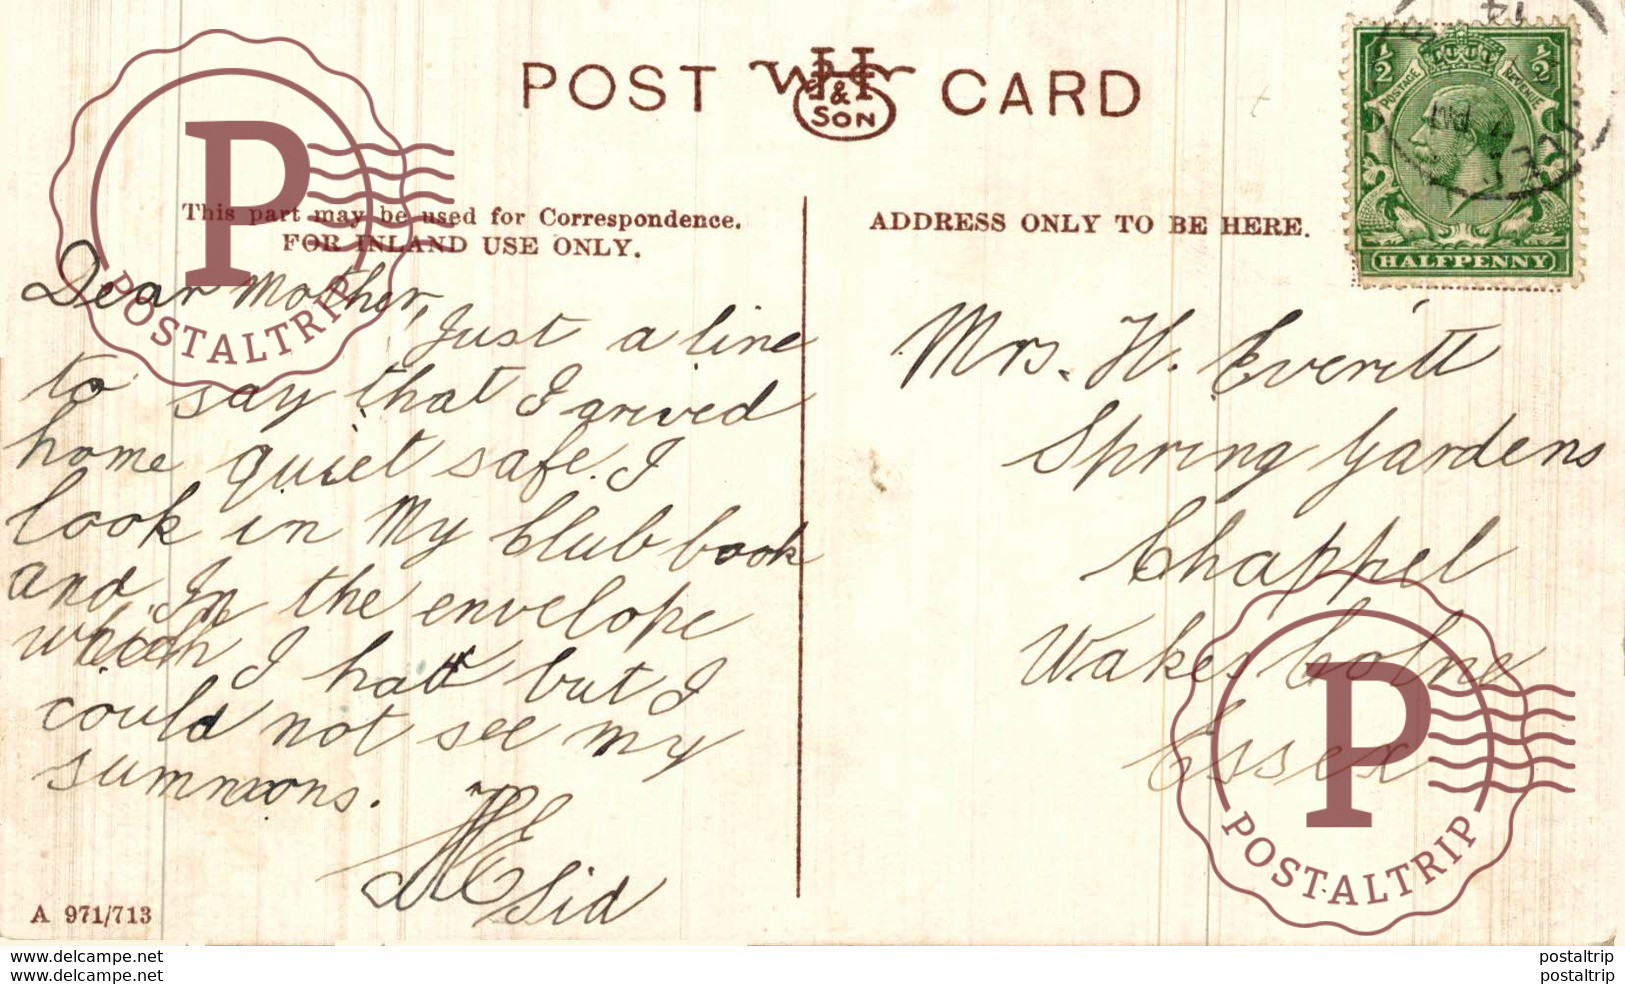 POST WHS & SON CARD
This part may be used for Correspondence.
FOR INLAND USE ONLY.
Dear Mother,
Just a line
to say that I arived
home quiet safe. I
look in My Club book
and In the envelope
which I had but I
could not see my
summons.
Sid
A 971/713
ADDRESS ONLY TO BE HERE.
Mrs. H. Everitt
Spring Gardens
Chappel
Wakes Colne
Essex
½ ½
POSTAGE REVENUE
HALFPENNY
14
PM
P
POSTALTRIP
P
POSTALTRIP
www.delcampe.net
www.delcampe.net
postaltrip
postaltrip